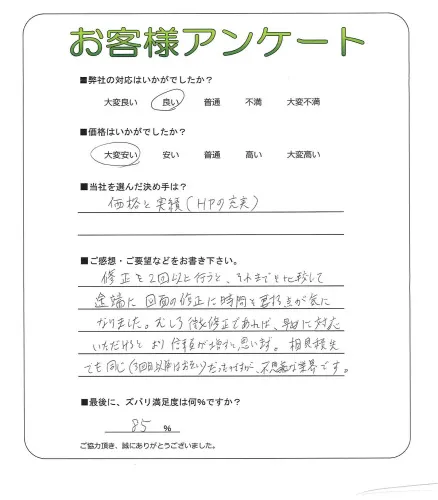 お客様アンケート
■弊社の対応はいかがでしたか？
大変良い 良い 普通 不満 大変不満
■価格はいかがでしたか？
大変安い 安い 普通 高い 大変高い
■当社を選んだ決め手は？
価格と実績(HPの充実)
■ご感想・ご要望などをお書き下さい。
修正を2回以上行うと、それまでと比較して
途端に図面の修正に時間を要する点が気に
なりました。むしろ微修正であれば、早めに対応
いただけると より信頼が増すと思います。相見積先
でも同じ(3回目以降はおそい)だったですが、不思議な業界です。
■最後に、ズバリ満足度は何%ですか？
85 %
ご協力頂き、誠にありがとうございました。